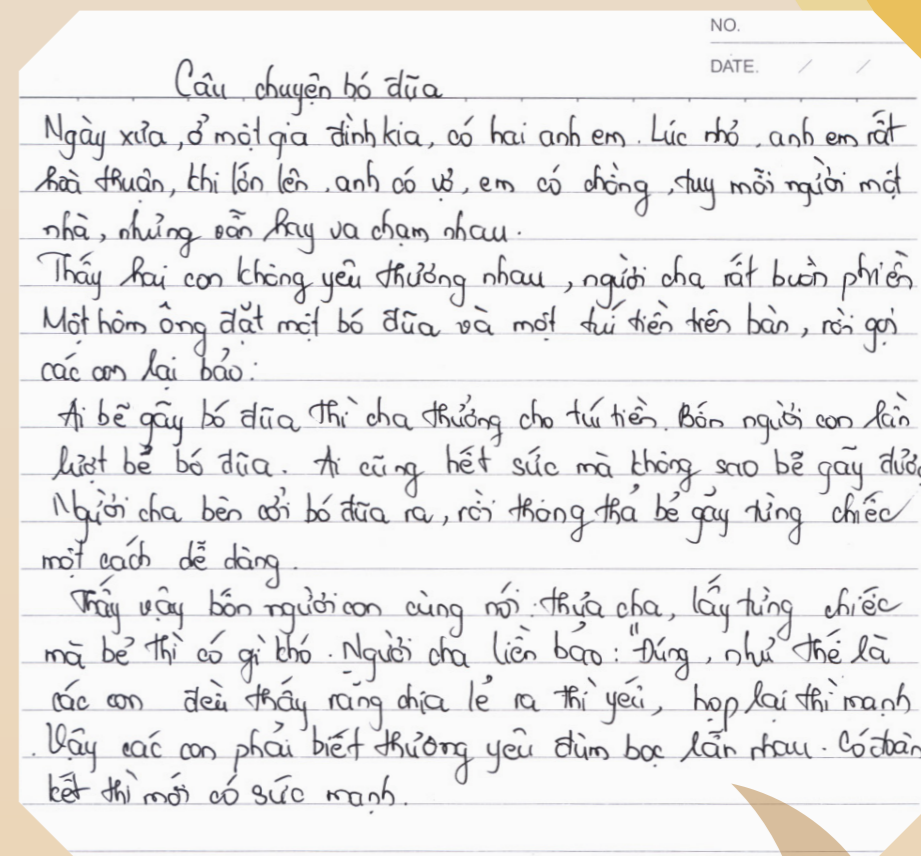 NO.
DATE. / /
Câu chuyện bó đũa
Ngày xưa, ở một gia đình kia, có hai anh em. Lúc nhỏ, anh em rất
hoà thuận, khi lớn lên, anh có vợ, em có chồng, tuy mỗi người một
nhà, nhưng vẫn hay va chạm nhau.
Thấy hai con không yêu thương nhau, người cha rất buồn phiền
Một hôm ông đặt một bó đũa và một túi tiền trên bàn, rồi gọi
các con lại bảo:
Ai bẽ gãy bó đũa thì cha thưởng cho túi tiền. Bốn người con lần
lượt bẻ bó đũa. Ai cũng hết sức mà không sao bẽ gãy đượ
Người cha bèn cởi bó đũa ra, rồi thong thả bẻ gảy từng chiếc
một cách dễ dàng.
Thấy vậy bốn người con cùng nói: thưa cha, lấy từng chiếc
mà bẻ thì có gì khó. Người cha liền bảo: "Đúng, như thế là
các con đều thấy rằng chia lẻ ra thì yếu, hợp lại thì mạnh
. Vậy các con phải biết thương yêu đùm bọc lẫn nhau. Có đoàn
kết thì mới có sức mạnh.